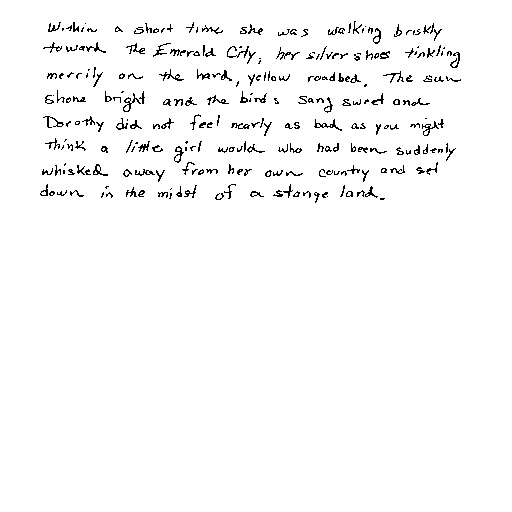 Within a short time she was walking briskly
toward the Emerald City, her silver shoes tinkling
merrily on the hard, yellow roadbed. The sun
shone bright and the birds sang sweet and
Dorothy did not feel nearly as bad as you might
think a little girl would who had been suddenly
whisked away from her own country and set
down in the midst of a stange land.